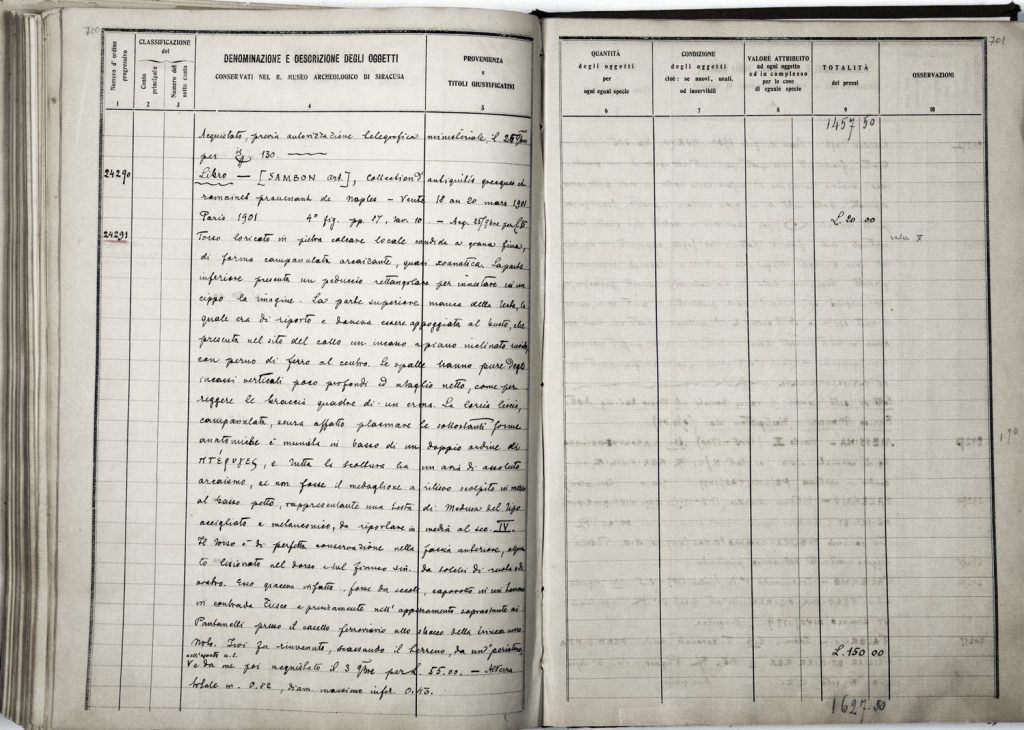 700
Numero d'ordine progressivo
CLASSIFICAZIONE del
Costo principale
Numero del sotto costo
DENOMINAZIONE E DESCRIZIONE DEGLI OGGETTI
CONSERVATI NEL R. MUSEO ARCHEOLOGICO DI SIRACUSA
PROVENIENZA
e
TITOLI GIUSTIFICATIVI
1 2 3 4 5
Acquistato, previa autorizzazione telegrafica ministeriale, il 25
per 130.
24290 Libro — [SAMBON art.], Collection d'antiquités grecques et
romaines provenant de Naples — Vente 18 au 20 mars 1901
Paris 1901 4° fig. pp 87, tav. 10 — Acq. 25
24291
Torso loricato in pietra calcare locale candida a grana fina,
di forma campanulata arcaizante, quasi xoanatica. La parte
inferiore presenta un peduccio rettangolare per innestare in un
cippo la imagine. La parte superiore manca della testa, la
quale era di riporto e doveva essere appoggiata al busto, che
presenta nel sito del collo un incavo a piano inclinato
con perno di ferro al centro. Le spalle hanno pure degli
incassi verticali poco profondi ed a taglio netto, come per
reggere le braccia quadre di un erma. La lorica liscia,
campanulata, senza affatto plasmare le sottostanti forme
anatomiche è munita in basso di un doppio ordine di
πτέρυγες, e tutta la scoltura ha un aria di assoluto
arcaismo, se non fosse il medaglione a rilievo scolpito in mezzo
al basso petto, rappresentante una testa di Medusa del tipo
accigliato e melanconico, da riportare in media al sec. IV.
Il torso è di perfetta conservazione nella faccia anteriore,
lesionato nel dorso e sul fianco sin. da solchi di ruota e di
aratro. Esso giaceva infatto, forse da secoli, capovolto in un
in contrada Fusco e precisamente nell'appezzamento soprastante ai
Pantanelli presso il casello ferroviario allo sbocco della trincea
Ivi fu rinvenuto, scassando il terreno, da un
da me poi acquistato il 3 per L. 55.00. — Altezza
totale m. 0.82, diam. massimo infer. 0.43.
701
QUANTITÀ
degli oggetti
per
ogni egual specie
CONDIZIONE
degli oggetti
cioè: se nuovi, usati,
od inservibili
VALORE ATTRIBUITO
ad ogni oggetto
ed in complesso
per le cose
di eguale specie
TOTALITÀ
dei prezzi
OSSERVAZIONI
6 7 8 9 10
1457 50
L. 20 00
sala X
190
L. 150 00
1627.50